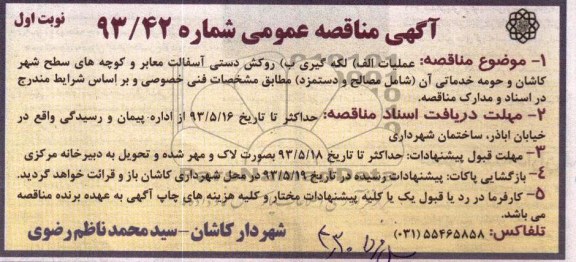 نوبت اول
آگهی مناقصه عمومی شماره ۹۳/۴۲
۱- موضوع مناقصه: عملیات الف) لکه گیری ب) روکش دستی آسفالت معابر و کوچه های سطح شهر
کاشان و حومه خدماتی آن (شامل مصالح و دستمزد) مطابق مشخصات فنی خصوصی و بر اساس شرایط مندرج
در اسناد و مدارک مناقصه.
۲- مهلت دریافت اسناد مناقصه: حداکثر تا تاریخ ۹۳/۵/۱۶ از اداره پیمان و رسیدگی واقع در
خیابان اباذر، ساختمان شهرداری
۳- مهلت قبول پیشنهادات: حداکثر تا تاریخ ۹۳/۵/۱۸ بصورت لاک و مهر شده و تحویل به دبیرخانه مرکزی
۴- بازگشایی پاکات: پیشنهادات رسیده در تاریخ ۹۳/۵/۱۹ در محل شهرداری کاشان باز و قرائت خواهد گردید.
۵- کارفرما در رد یا قبول یک یا کلیه پیشنهادات مختار و کلیه هزینه های چاپ آگهی به عهده برنده مناقصه
می باشد.
تلفاکس: ۵۵۴۶۵۸۵۸ (۰۳۱)
شهردار کاشان-سیدمحمدناظم رضوی